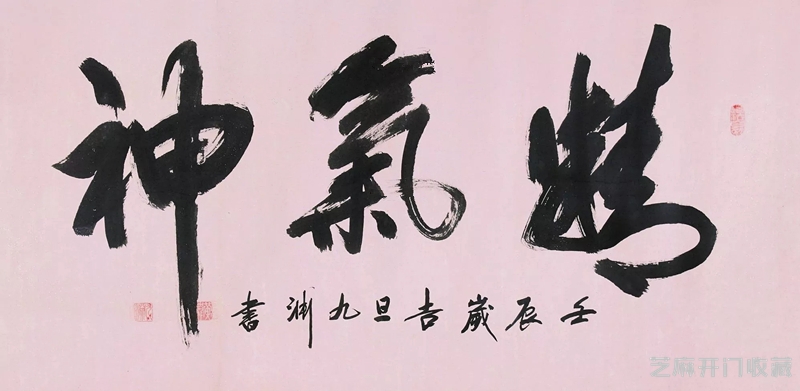 精氣神
壬辰歲吉旦九渊書
芝麻开门收藏